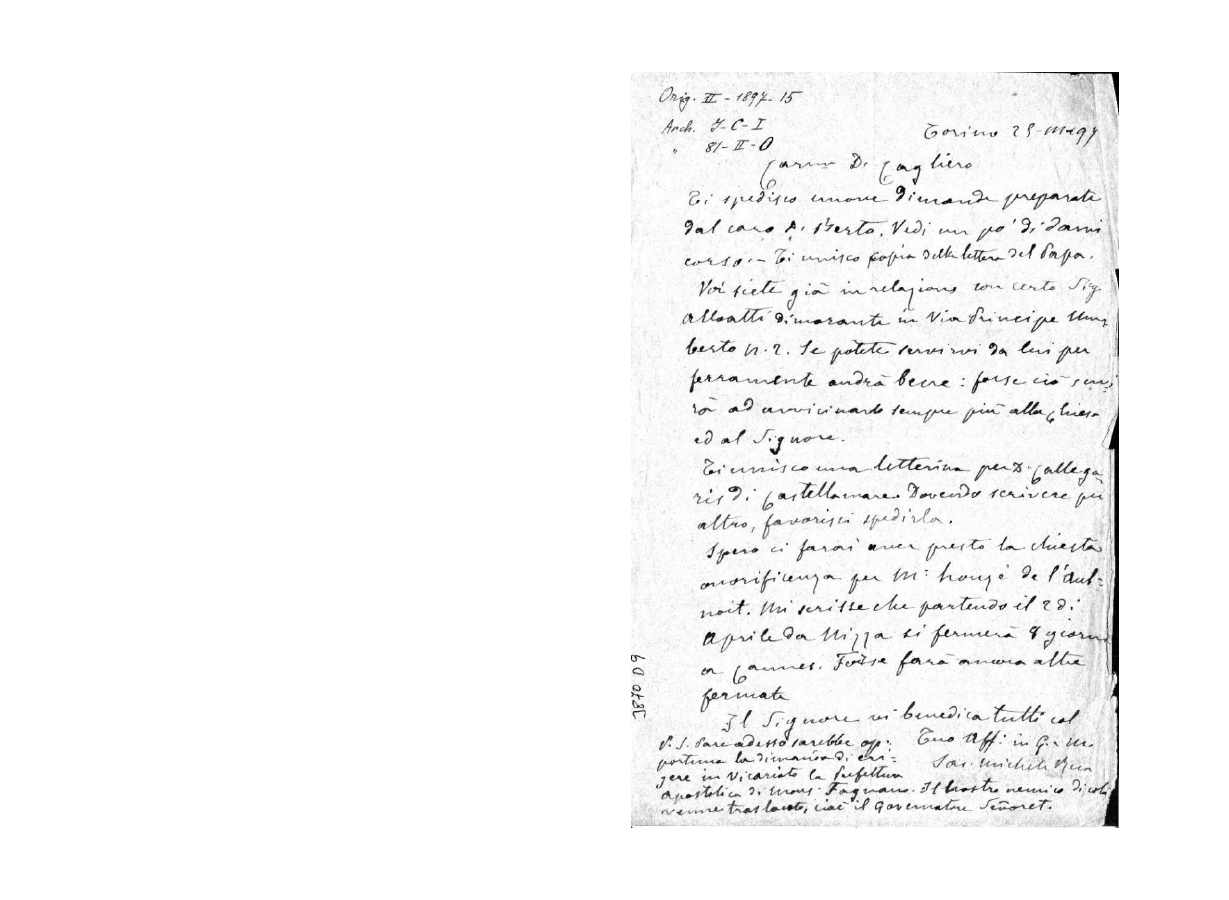 Orig. II - 1897 - 15
Arch. J-C-I
" 81-II-O
Torino 25-
Carmo D. Cagliero
Ti spedisco nuove dimande preparate
dal caro D. Berto. Vedi un po' di darvi
corso. - Ti unisco copia della lettera del Papa.
Voi siete già in relazione con certo Sig.
Alloatti dimorante in Via Principe Um-
berto N. 2. Se potete servirvi da lui per
ferramente andrà bene: forse ciò servi-
rà ad avvicinarlo sempre più alla Chiesa
ed al Signore.
Ti unisco una letterina per D. Callega-
ris di Castellamare. Dovendo scrivere per
altro, favorisci spedirla.
Spero ci farai aver presto la chiesta
onorificenza per Mr. houzé de l'Aul-
noit. Mi scrisse che partendo il 2 di
Aprile da Nizza si fermerà 8 giorni
a Cannes. Forse farà ancora altre
fermate
Il Signore vi benedica tutti col
Tuo Aff. in G. e M.
Sac. Michele Rua
P. S. Pare adesso sarebbe op:
portuna la dimanda di eri:
gere in Vicariato la Prefettura
Apostolica di Mons. Fagnano. Il nostro nemico di colà
venne traslocato, cioè il Governatore Señoret.
3870 D9